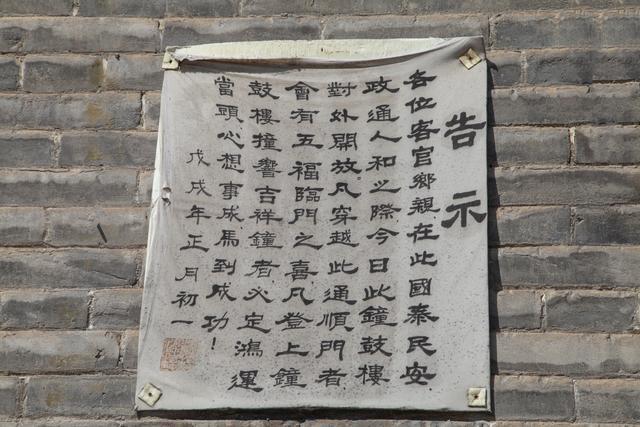 告示
各位客官鄉親在此國泰民安
政通人和之際今日此鐘鼓樓
對外開放凡穿越此通順門者
會有五福臨門之喜凡登上鐘
鼓樓撞響吉祥鐘者必定鴻運
當頭心想事成馬到成功！
戊戌年正月初一